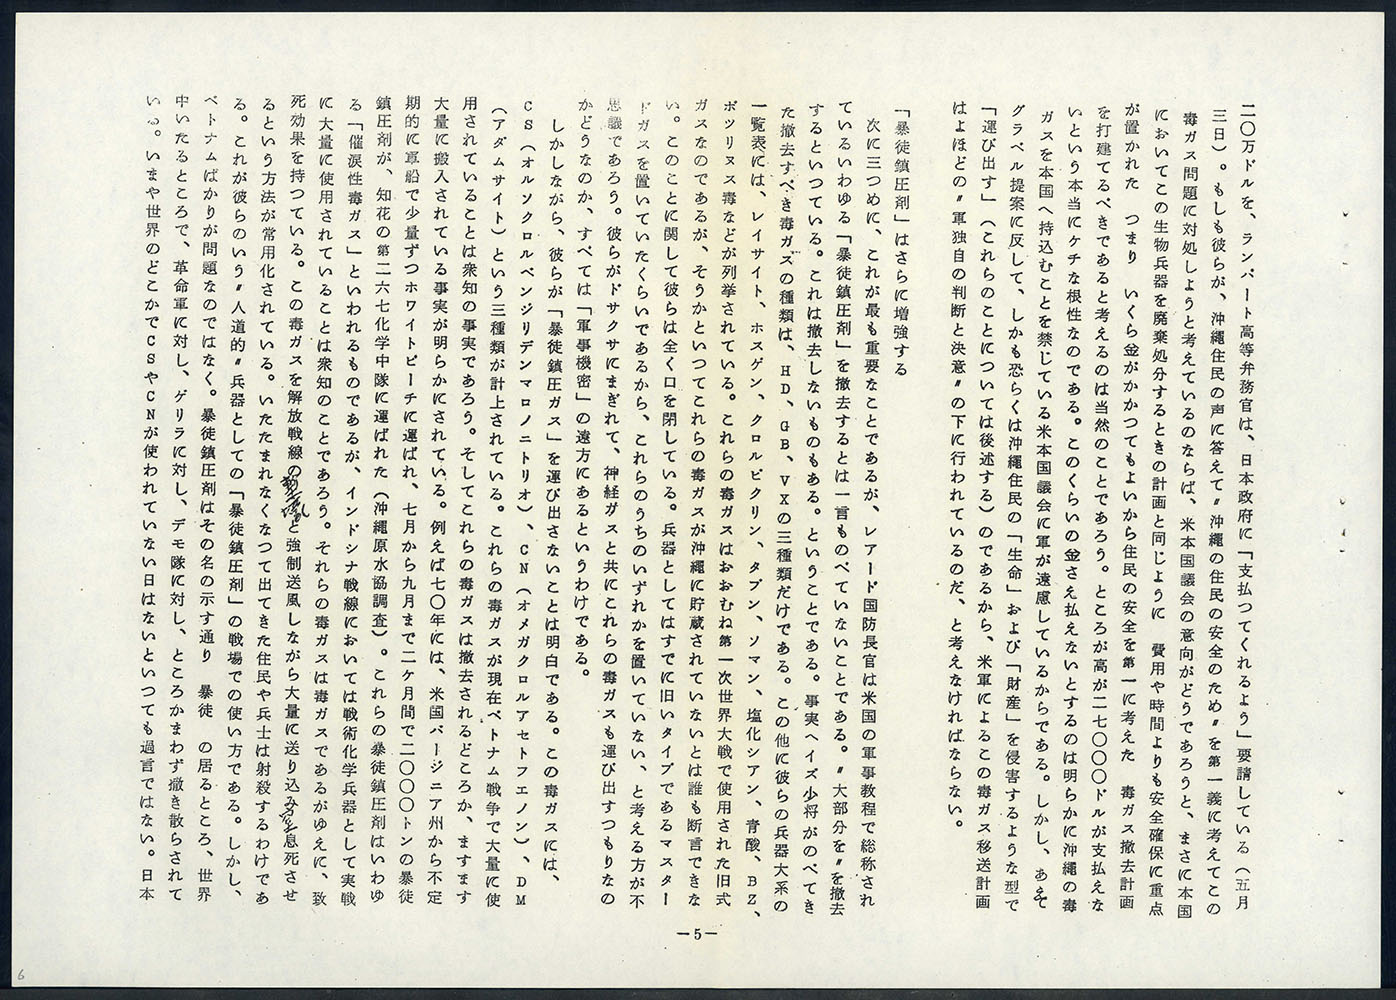 二〇万ドルを、ランパート高等弁務官は、日本政府に「支払つてくれるよう」要請している（五月
三日）。もしも彼らが、沖縄住民の声に答えて〃沖縄の住民の安全のため〃を第一義に考えてこの
毒ガス問題に対処しようと考えているのならば、米本国議会の意向がどうであろうと、まさに本国
においてこの生物兵器を廃棄処分するときの計画と同じように　費用や時間よりも安全確保に重点
が置かれた　つまり　いくら金がかかつてもよいから住民の安全を第一に考えた　毒ガス撤去計画
を打建てるべきであると考えるのは当然のことであろう。ところが高が二七〇〇〇ドルが支払えな
いという本当にケチな根性なのである。このくらいの金さえ払えないとするのは明らかに沖縄の毒
ガスを本国へ持込むことを禁じている米本国議会に軍が遠慮しているからである。しかし、あえて
グラベル提案に反して、しかも恐らくは沖縄住民の「生命」および「財産」を侵害するような型で
「運び出す」（これらのことについては後述する）のであるから、米軍によるこの毒ガス移送計画
はよほどの〃軍独自の判断と決意〃の下に行われているのだ、と考えなければならない。
「暴徒鎮圧剤」はさらに増強する
次に三つめに、これが最も重要なことであるが、レアード国防長官は米国の軍事教程で総称され
ているいわゆる「暴徒鎮圧剤」を撤去するとは一言ものべていないことである。〃大部分を〃を撤去
するといつている。これは撤去しないものもある。ということである。事実ヘイズ少将がのべてき
た撤去すべき毒ガスの種類は、ＨＤ、ＧＢ、ＶＸの三種類だけである。この他に彼らの兵器大系の
一覧表には、レイサイト、ホスゲン、クロルピクリン、タブン、ソマン、塩化シアン、青酸、ＢＺ、
ボツリヌス毒などが列挙されている。これらの毒ガスはおおむね第一次世界大戦で使用された旧式
ガスなのであるが、そうかといつてこれらの毒ガスが沖縄に貯蔵されていないとは誰も断言できな
い。このことに関して彼らは全く口を閉している。兵器としてはすでに旧いタイプであるマスター
ドガスを置いていたくらいであるから、これらのうちのいずれかを置いていない、と考える方が不
思議であろう。彼らがドサクサにまぎれて、神経ガスと共にこれらの毒ガスも運び出すつもりなの
かどうなのか、すべては「軍事機密」の遠方にあるというわけである。
しかしながら、彼らが「暴徒鎮圧ガス」を運び出さないことは明白である。この毒ガスには、
ＣＳ（オルソクロルベンジリデンマロノニトリオ）、ＣＮ（オメガクロルアセトフエノン）、ＤＭ
（アダムサイト）という三種類が計上されている。これらの毒ガスが現在ベトナム戦争で大量に使
用されていることは衆知の事実であろう。そしてこれらの毒ガスは撤去されるどころか、ますます
大量に搬入されている事実が明らかにされている。例えば七〇年には、米国バージニア州から不定
期的に軍船で少量ずつホワイトビーチに運ばれ、七月から九月まで二ケ月間で二〇〇〇トンの暴徒
鎮圧剤が、知花の第二六七化学中隊に運ばれた（沖縄原水協調査）。これらの暴徒鎮圧剤はいわゆ
る「催涙性毒ガス」といわれるものであるが、インドシナ戦線においては戦術化学兵器として実戦
に大量に使用されていることは衆知のことであろう。それらの毒ガスは毒ガスであるがゆえに、致
死効果を持つている。この毒ガスを解放戦線のと強制送風しながら大量に送り込み窒息死させ
るという方法が常用化されている。いたたまれなくなつて出てきた住民や兵士は射殺するわけであ
る。これが彼らのいう〃人道的〃兵器としての「暴徒鎮圧剤」の戦場での使い方である。しかし、
ベトナムばかりが問題なのではなく。暴徒鎮圧剤はその名の示す通り　暴徒　の居るところ、世界
中いたるところで、革命軍に対し、ゲリラに対し、デモ隊に対し、ところかまわず撒き散らされて
いる。いまや世界のどこかでＣＳやＣＮが使われていない日はないといつても過言ではない。日本
－5－
6